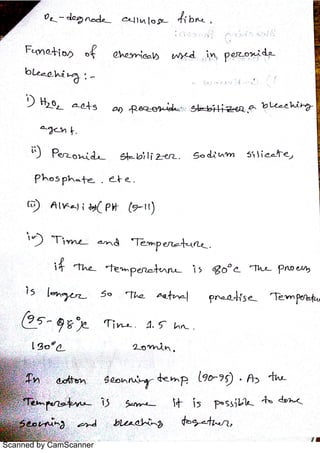 O2 - degrade cellulose fibre.
Function of chemicals used in peroxide
bleaching :-
i) H2O2 acts as a bleaching
agent.
ii) Peroxide stabilizer. Sodium Silicate,
Phosphate . etc.
iii) Alkali (PH (9-11)
iv) Time and Temperature.
if the temperature is 80°c The process
is longer so The actual practise Temperatu
(95-98°)c Time. 1.5 hr.
130°c 20min.
In cotton scouring temp (90-95) . As the
Temperature is same it is possible to done
scouring and bleaching together,
Scanned by CamScanner